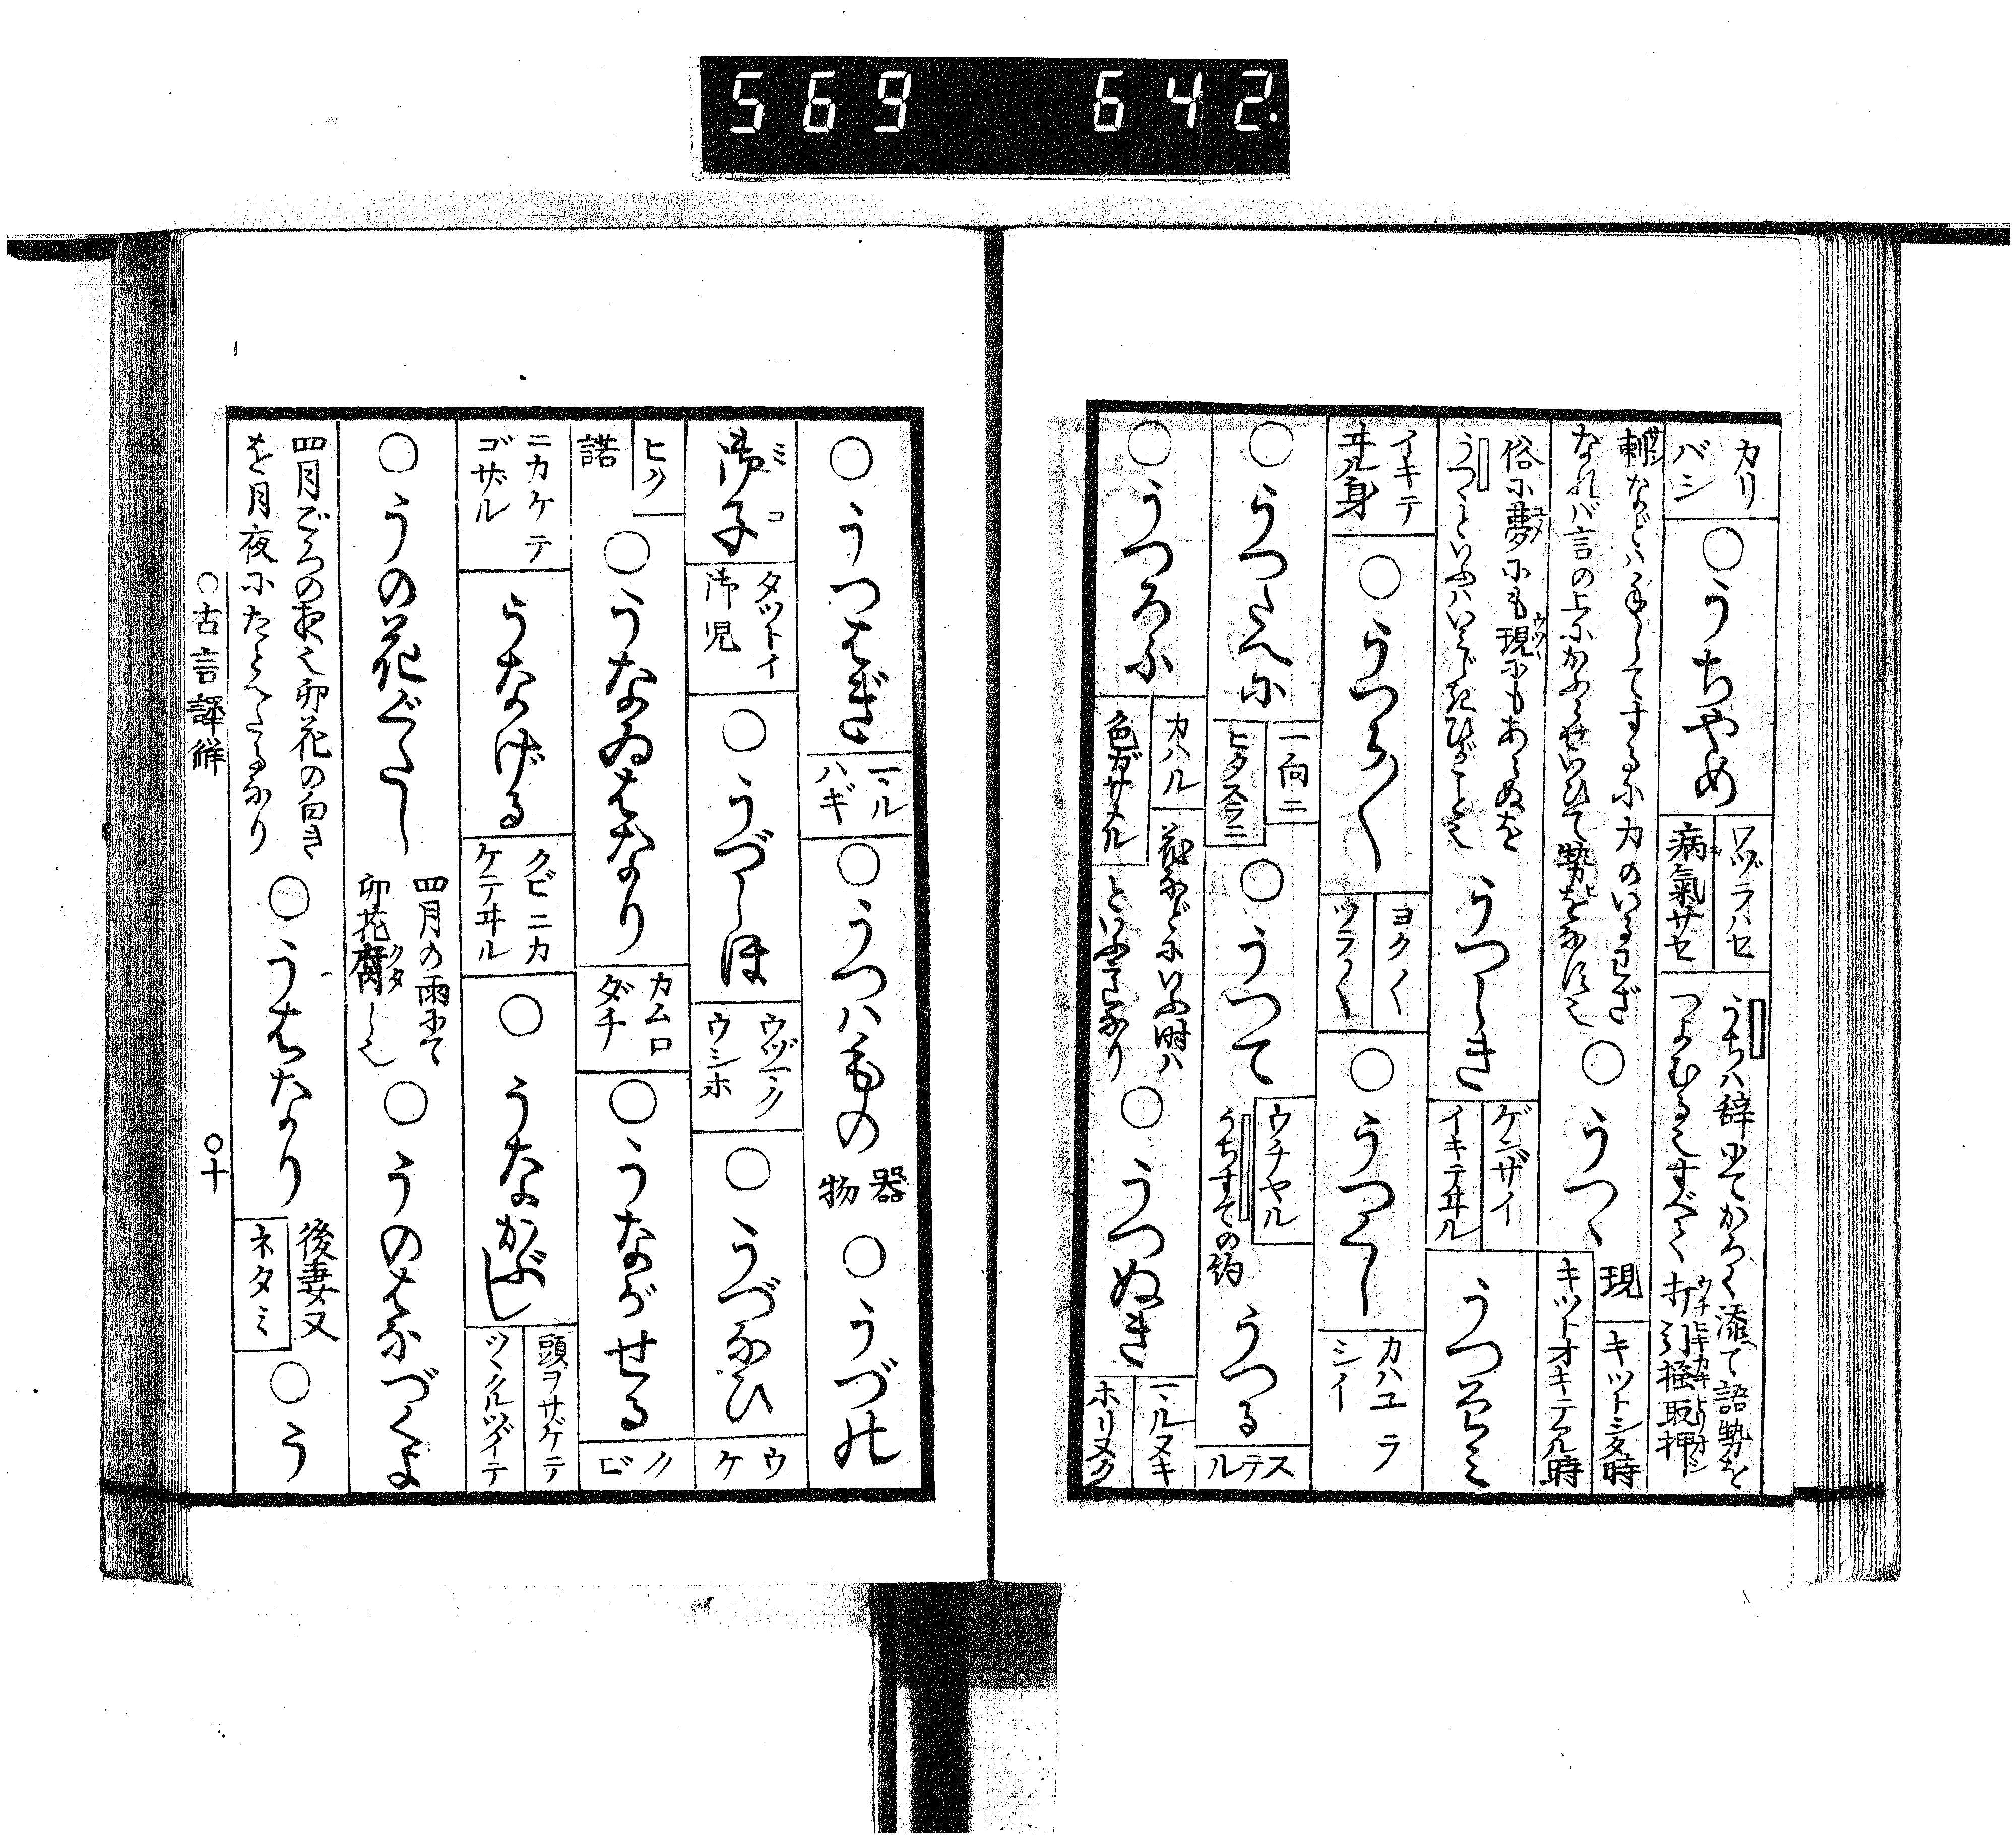 569 642.
カリ
バシ
○うちやめ
ワヅラハセ
病氣サセ
うちハ辞にてかろく添て語勢を
つよむる也すべて打引掻取押
刺などハ手してするに力のいるわざ
なれバ言の上にかふらせいひて勢をなす也
○うつゝ
現
キツトシタ時
キツトオキテアル時
俗に夢にも現にもあらぬを
うつゝといふハいみじきひがこと也
うつしき
ゲンザイ
イキテヰル
うつせミ
イキテ
ヰル身
○うつら〳〵
ヨク〳〵
ツラ〳〵
○うつくし
カハユラ
シイ
○うつたへに
一向ニ
ヒタスラニ
○うつて
ウチヤル
うちすての約
うつる
ステル
○うつろふ
カハル
色ガサメル
花などにいふ時ハ
といふ意なり
○うつぬき
一ヽルヌキ
ホリヌク
○うつはぎ
一ヽル
ハギ
○うつハもの
器
物
○うづの
御子
ミコ
タツトイ
御児
○うづしほ
ウヅマク
ウシホ
○うづなひ
ウケ
ヒク
諾
○うなゐはなり
カムロ
ダチ
○うながせる
クビ
ニカケテ
ゴザル
うなげる
クビニカ
ケテヰル
○うなかぶし
頭ヲサゲテ
ウツムイテ
○うの花ぐたし
四月の雨にて
卯花腐し也
クタ
○うのはなづくよ
四月ごろの夜之卯花の白き
を月夜にたとへたるなり
○うはなり
後妻又
ネタミ
○う
○古言譯解
○十